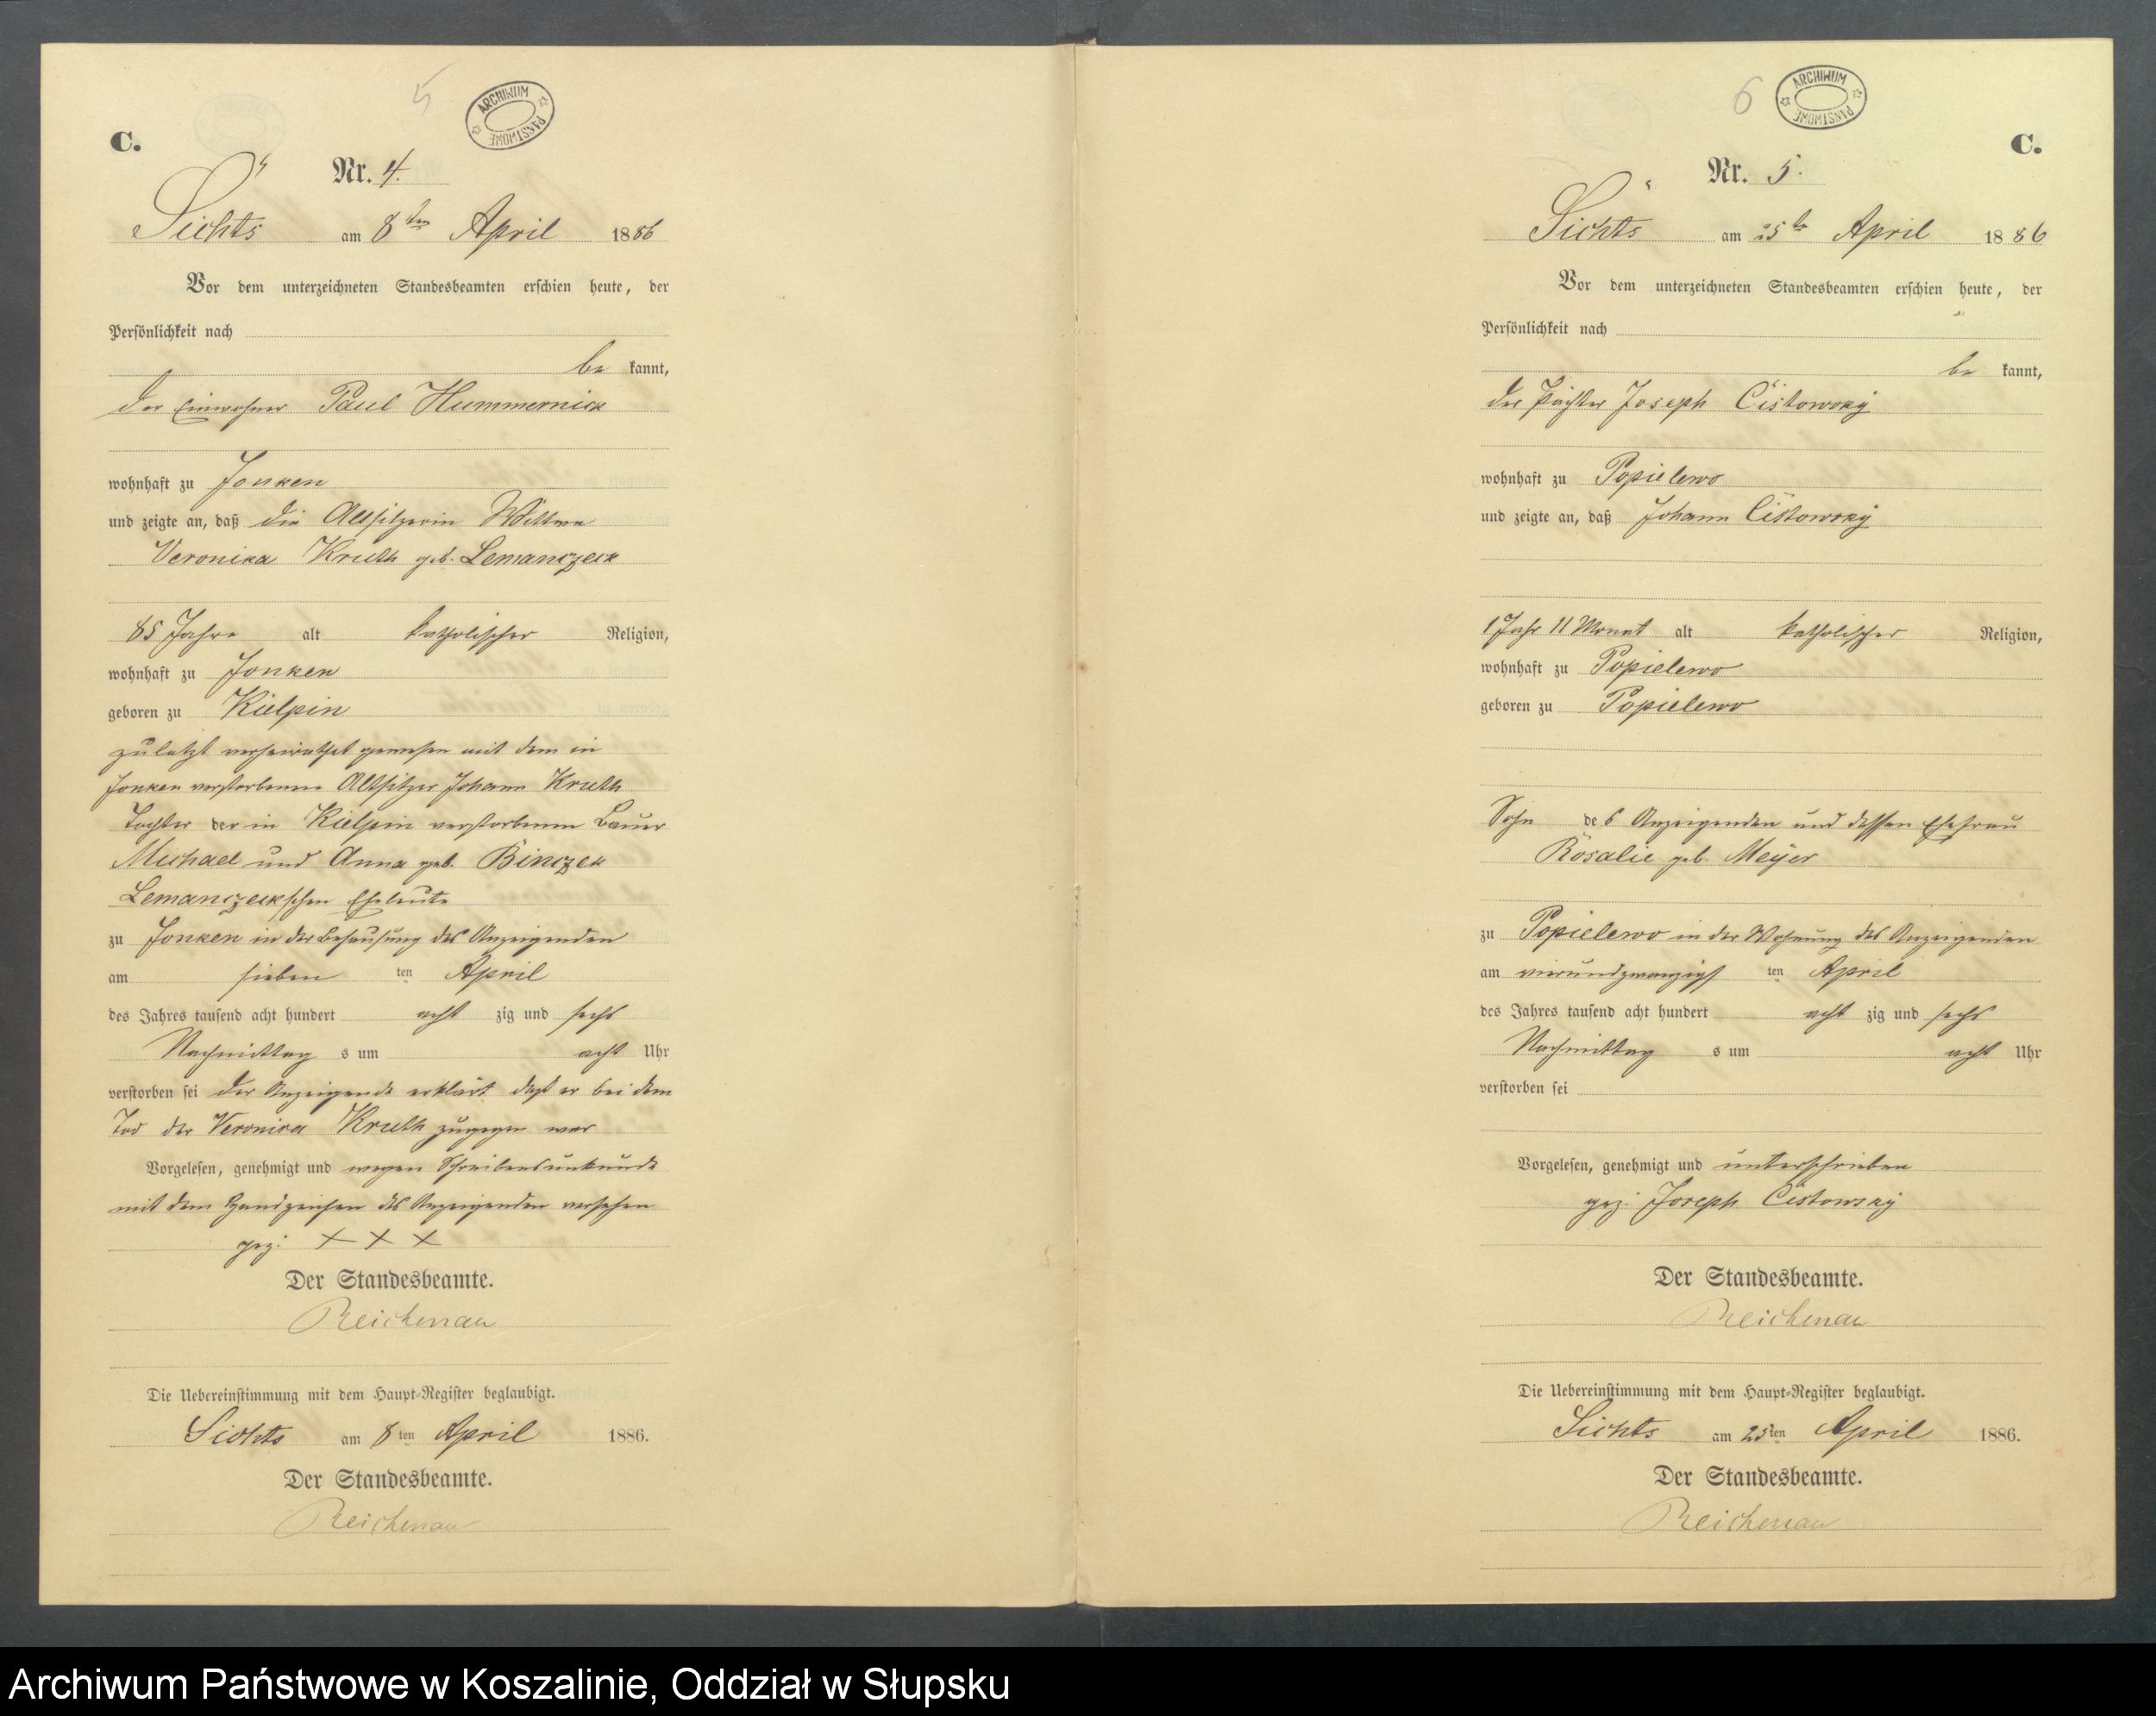 5
ARCHIWUM PAŃSTWOWE
C.
Nr. 4.
Sichts am 8ten April 1886
Vor dem unterzeichneten Standesbeamten erschien heute, der
Persönlichkeit nach
be kannt,
der Einwohner Paul Hummernick
wohnhaft zu Jonken
und zeigte an, daß die Altsitzerin Wittwe
Veronika Kruth geb. Lemanczeck
85 Jahre alt katholischer Religion,
wohnhaft zu Jonken
geboren zu Kielpin
zuletzt verheirathet gewesen mit dem in
Jonken verstorbenen Altsitzer Johann Kruth
Tochter der in Kielpin verstorbenen Bauer
Michael und Anna geb. Binczek
Lemanczeckschen Eheleute
zu Jonken in der Behausung des Anzeigenden
am sieben ten April
des Jahres tausend acht hundert acht zig und sechs
Nachmittag s um acht Uhr
verstorben sei der Anzeigende erklärt daß er bei dem
Tod der Veronika Kruth zugegen war
Vorgelesen, genehmigt und wegen Schreibensunkunde
mit dem Handzeichen des Anzeigenden versehen
gez: X X X
Der Standesbeamte.
Reichenau
Die Uebereinstimmung mit dem Haupt-Register beglaubigt.
Sichts am 8ten April 1886.
Der Standesbeamte.
Reichenau
6
ARCHIWUM PAŃSTWOWE
C.
Nr. 5.
Sichts am 25te April 1886
Vor dem unterzeichneten Standesbeamten erschien heute, der
Persönlichkeit nach
be kannt,
der Pächter Joseph Cistowsky
wohnhaft zu Popielewo
und zeigte an, daß Johann Cistowsky
1 Jahr 11 Monat alt katholischer Religion,
wohnhaft zu Popielewo
geboren zu Popielewo
Sohn des Anzeigenden und dessen Ehefrau
Rosalie geb. Meyer
zu Popielewo in der Wohnung des Anzeigenden
am vierundzwanzigs ten April
des Jahres tausend acht hundert acht zig und sechs
Nachmittag s um acht Uhr
verstorben sei
Vorgelesen, genehmigt und unterschrieben
gez: Joseph Cistowsky
Der Standesbeamte.
Reichenau
Die Uebereinstimmung mit dem Haupt-Register beglaubigt.
Sichts am 25ten April 1886.
Der Standesbeamte.
Reichenau
Archiwum Państwowe w Koszalinie, Oddział w Słupsku